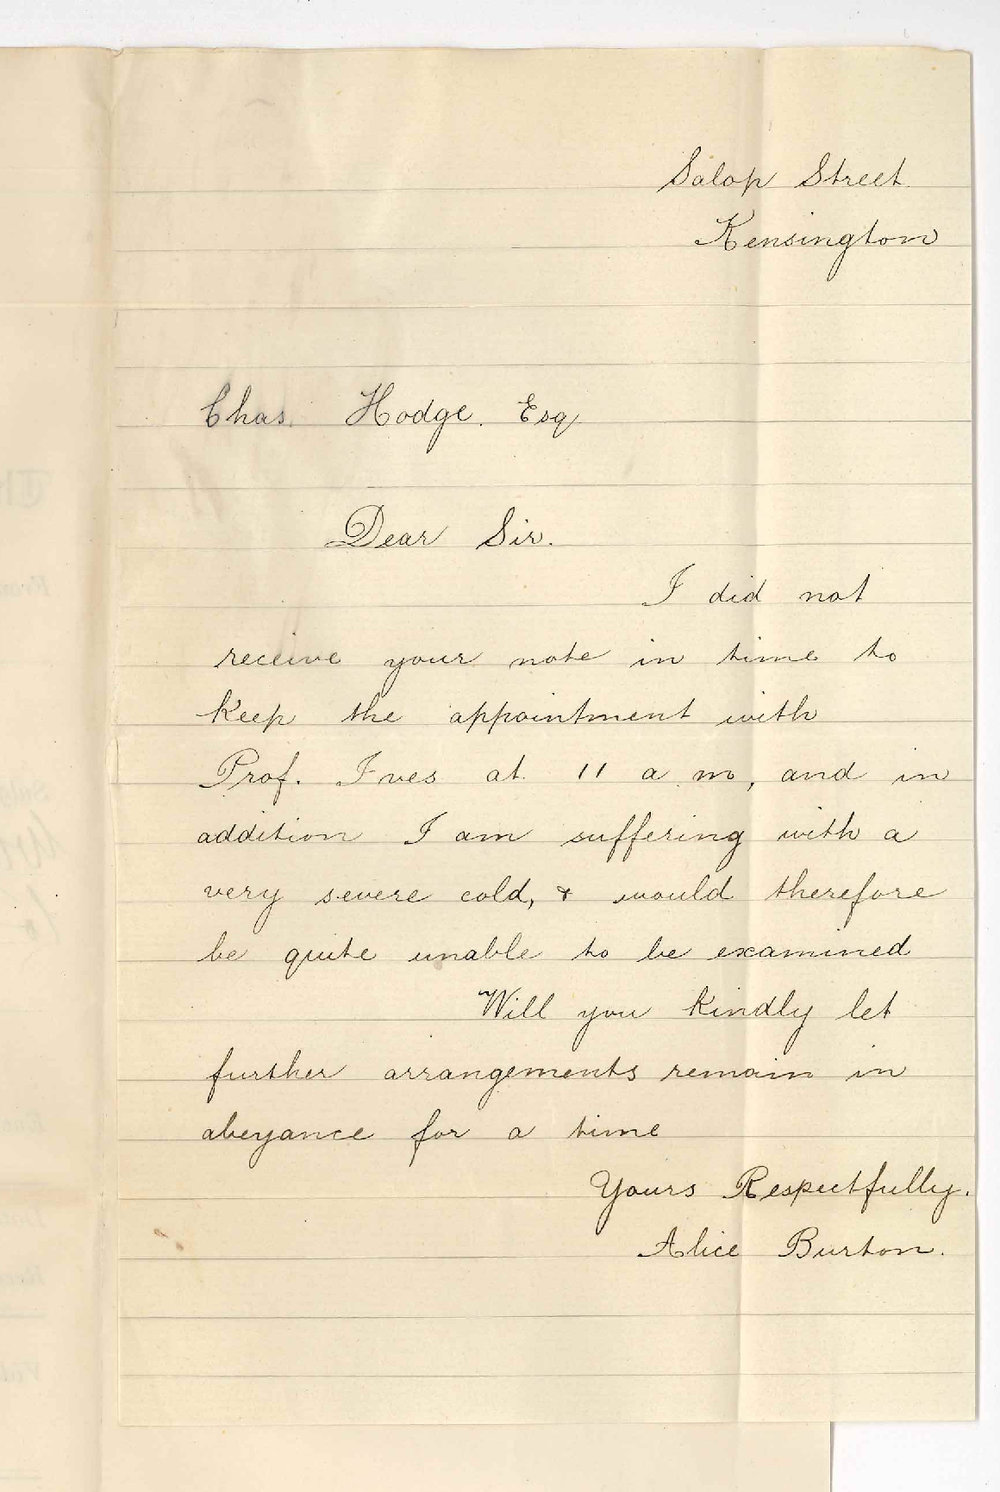 Salop Street
Kensington
Chas. Hodge. Esq
Dear Sir.
I did not
receive your note in time to
keep the appointment with
Prof. Ives at 11 a m, and in
addition I am suffering with a
very severe cold, & would therefore
be quite unable to be examined
Will you kindly let
further arrangements remain in
abeyance for a time
Yours Respectfully.
Alice Burton.